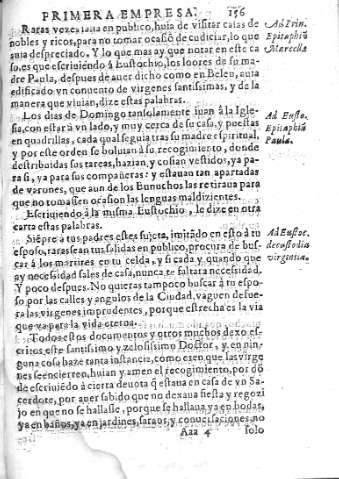 PRIMERA EMPRESA. 156
Raras vezes iuna en publico, huia de visitar casas de
nobles y ricos, para no tomar ocasiō de cudiciar, lo que
auia despreciado. Y lo que mas ay que notar en este ca
so, es que escriuiendo á Eustochio, los loores de su ma-
dre Paula, despues de auer dicho como en Belen, auia
edificado vn conuento de virgenes santissimas, y de la
manera que viuian, dize estas palabras.
Los dias de Domingo tansolamente iuan á la Igle-
sia, con estar á vn lado, y muy cerca de su casa, y puestas
en quadrillas, cada qual seguia tras su madre espiritual,
y por este orden se boluian á su recogimiento, donde
destribuidas sus tareas, hazian, y cosian vestidos, ya pa-
ra si, ya para sus compañeras: y estauan tan apartadas
de varones, que aun de los Eunuchos las retiraua para
que no tomassen ocasion las lenguas maldizientes.
Escriuiendo á la misma Eustochio, le dize en otra
carta estas palabras.
Siēpre a tus padres estes sujeta, imitādo en esto á tu
esposo, raras sean tus salidas en publico, procura de bus-
car á los martires en tu celda, y si cada y quando que
ay necessidad sales de casa, nunca te faltara necessidad.
Y poco despues. No quieras tampoco buscar á tu espo-
so por las calles y angulos de la Ciudad, vaguen de fue-
ra las virgenes imprudentes, porque estrecha es la via
que va para la vida eterna.
Todos estos documentos y otros muchos dexo es-
critos este santissimo y zelosissimo Doctor, y en nin-
guna cosa haze tanta instancia, como es en que las virge
nes se encierren, huian y amen el recogimiento, por dō
de escriuiēdo á cierta deuota q̄ estaua en casa de vn Sa-
cerdote, por auer sabido que no dexaua fiesta y regozi
jo en que no se hallasse, porque se hallaua ya en bodas,
ya en baños, ya en jardines, saraos, y conuersaciones no
Aaa 4 solo
Ad Prin.
Epitaphiū
Marcella
Ad Eusto.
Epitaphiū
Paula.
Ad Eustoc.
de custodia
virginita.